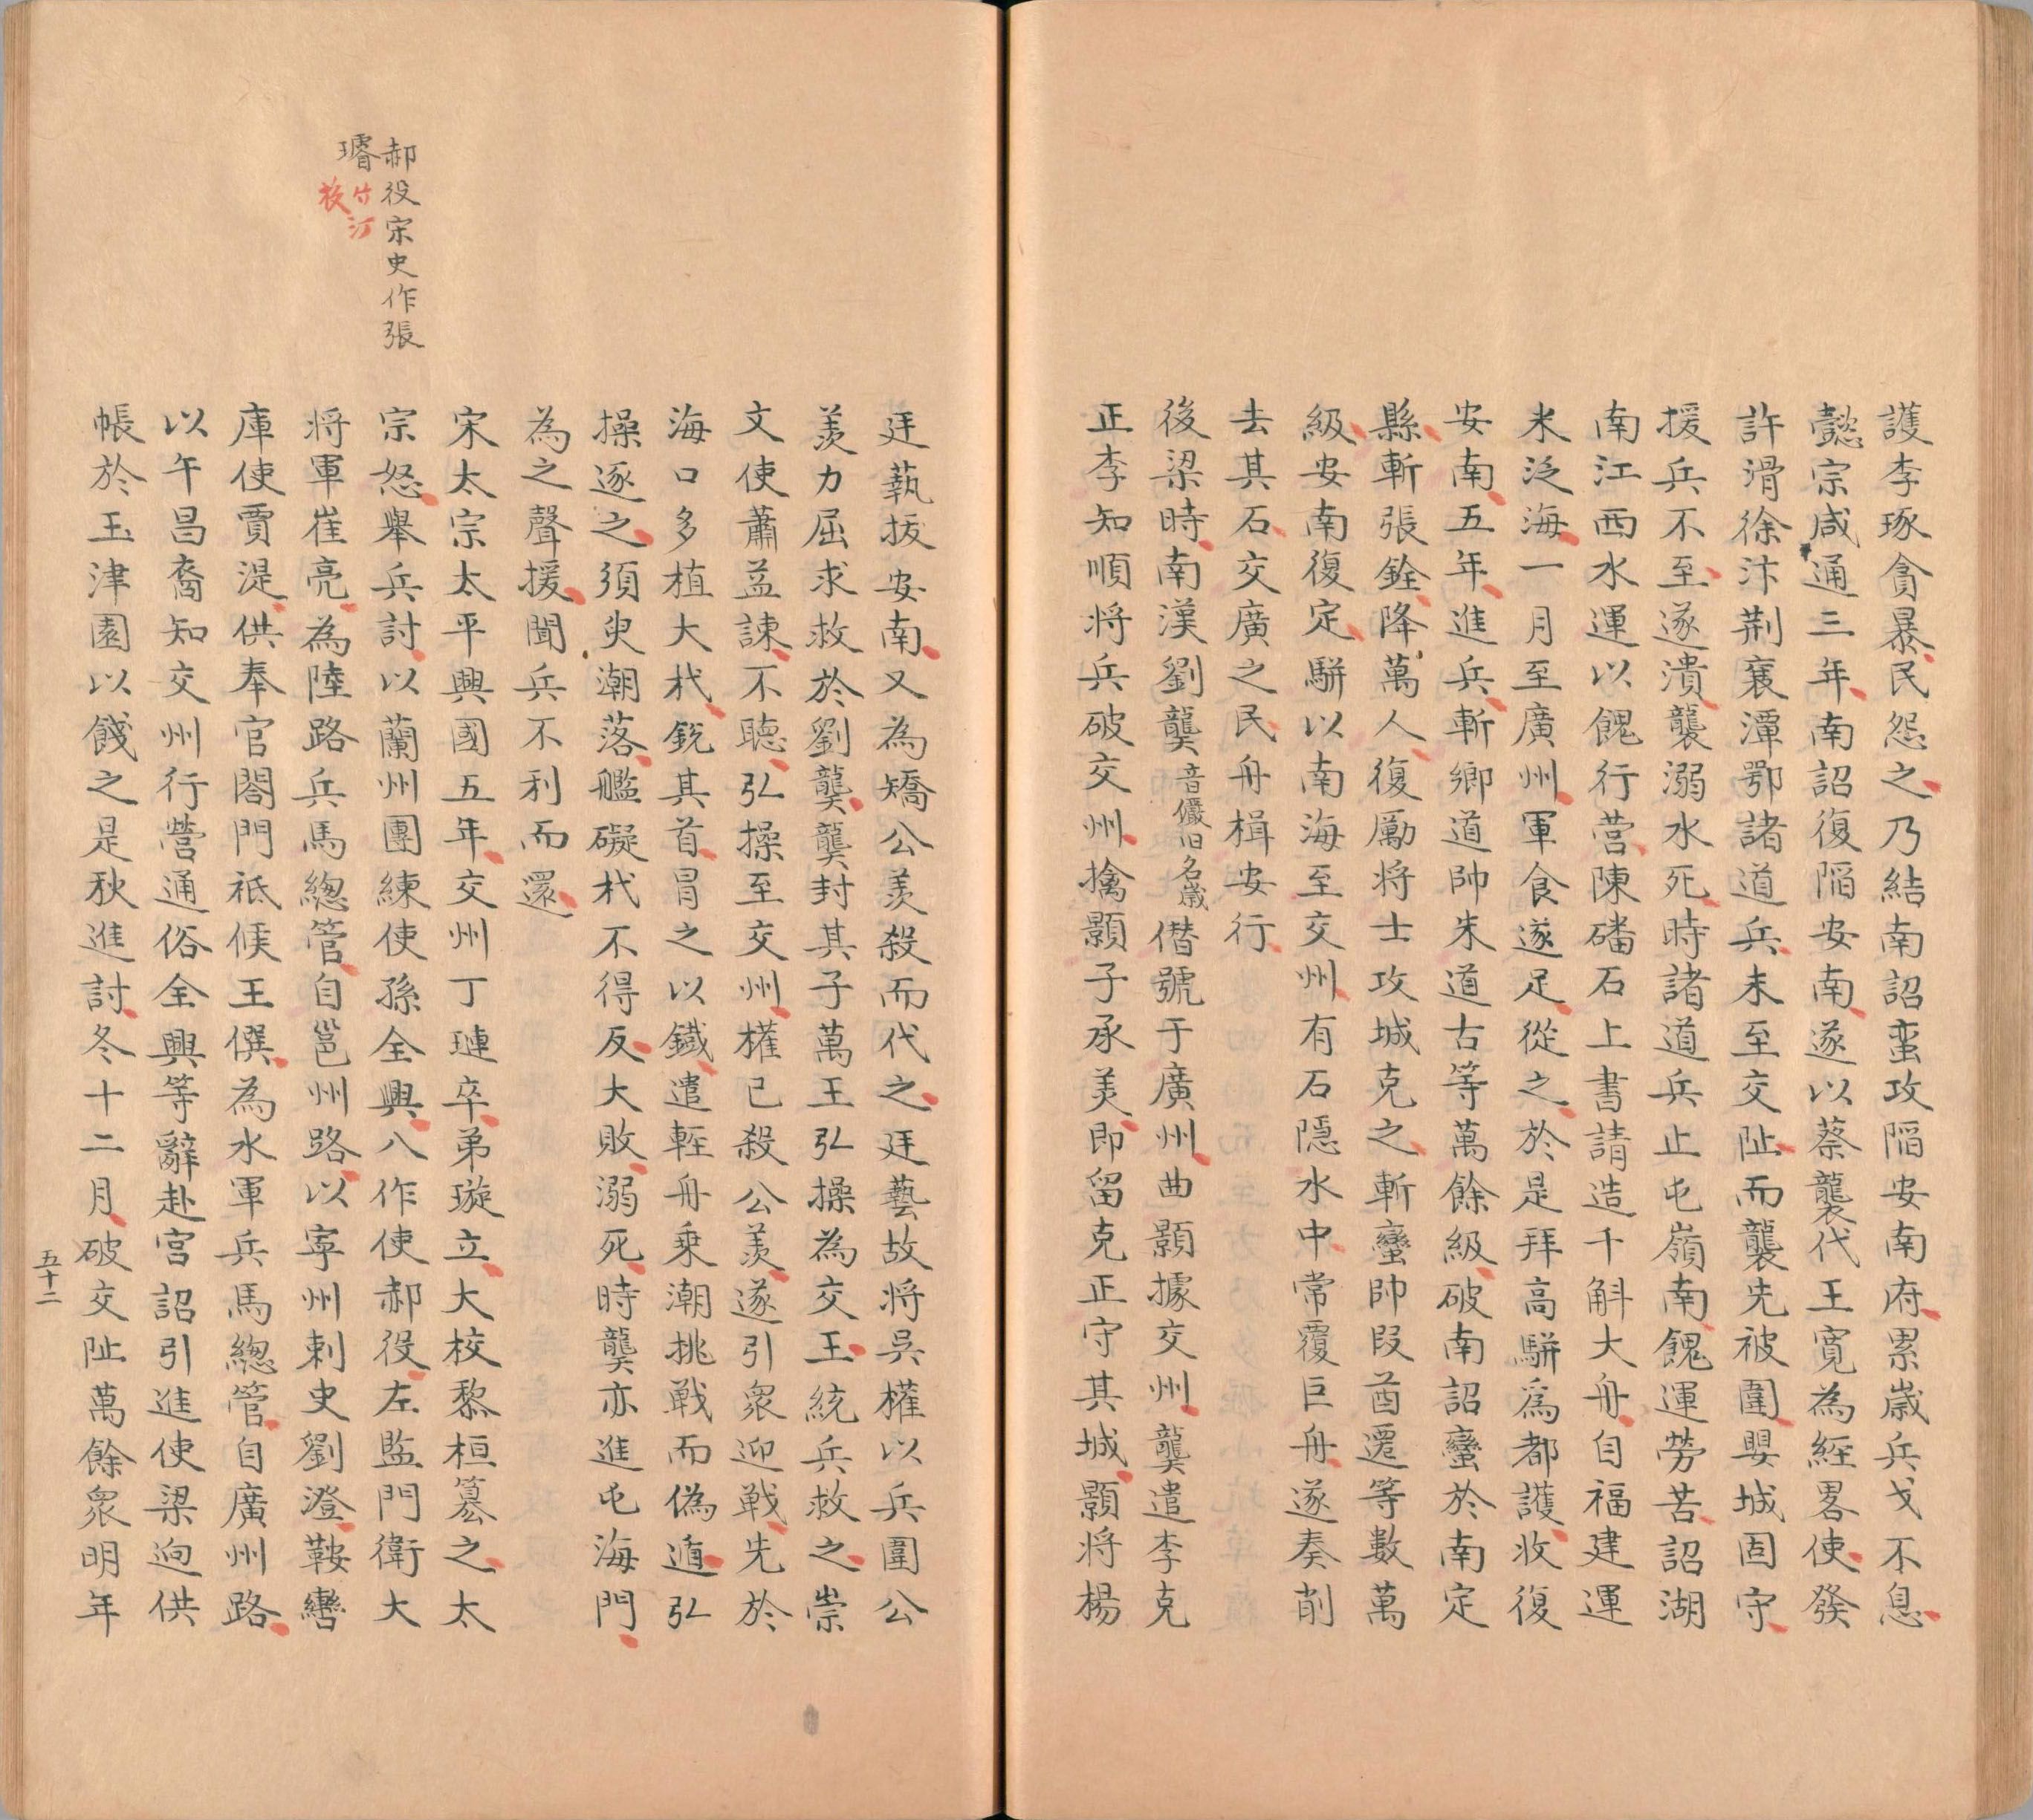 護李琢貪暴民怨之乃結南詔蛮攻陷安南府累嵗兵戈不息
懿宗咸通三年南詔復陷安南遂以蔡襲代王寬為經畧使發
許滑徐汴荆襄潭鄂諸道兵未至交阯而襲先被圍嬰城固守
援兵不至遂潰襲溺水死時諸道兵止屯嶺南餽運勞苦詔湖
南江西水運以餽行营陳磻石上書請造千斛大舟自福建運
米泛海一月至廣州軍食遂足從之於是拜高駢爲都護收復
安南五年進兵斬鄉道帥朱道古等萬餘級破南詔蠻於南定
縣斬張銓降萬人復勵将士攻城克之斬蠻帥叚酋遷等數萬
級安南復定駢以南海至交州有石隱水中常覆巨舟遂奏削
去其石交廣之民舟楫安行
後梁時南漢劉龑音儼旧名巖僣號于廣州曲顥據交州龑遣李克
正李知順将兵破交州擒顥子承美即留克正守其城顥将楊
廷藝拔安南又為矯公羡殺而代之廷藝故将吳權以兵圍公
羡力屈求救於劉龑龑封其子萬王弘操為交王統兵救之崇
文使蕭益諫不聽弘操至交州權已殺公羡遂引衆迎戰先於
海口多植大杙鋭其首冒之以鐵遣輕舟乗潮挑戰而偽遁弘
操逐之須臾潮落艦礙杙不得反大敗溺死時龑亦進屯海門
為之聲援聞兵不利而還
宋太宗太平興國五年交州丁璉卒弟璇立大校黎桓簒之太
宗怒舉兵討以蘭州團練使孫全興八作使郝役左監門衛大
将軍崔亮為陸路兵馬總管自邕州路以寧州刺史劉澄鞍轡
庫使賈湜供奉官閤門祗候王僎為水軍兵馬總管自廣州路
以午昌裔知交州行營通俗全興等辭赴宫詔引進使梁逈供
帳於玉津園以餞之是秋進討冬十二月破交阯萬餘衆明年
五十二
郝役宋史作張
璿
竹汀
校